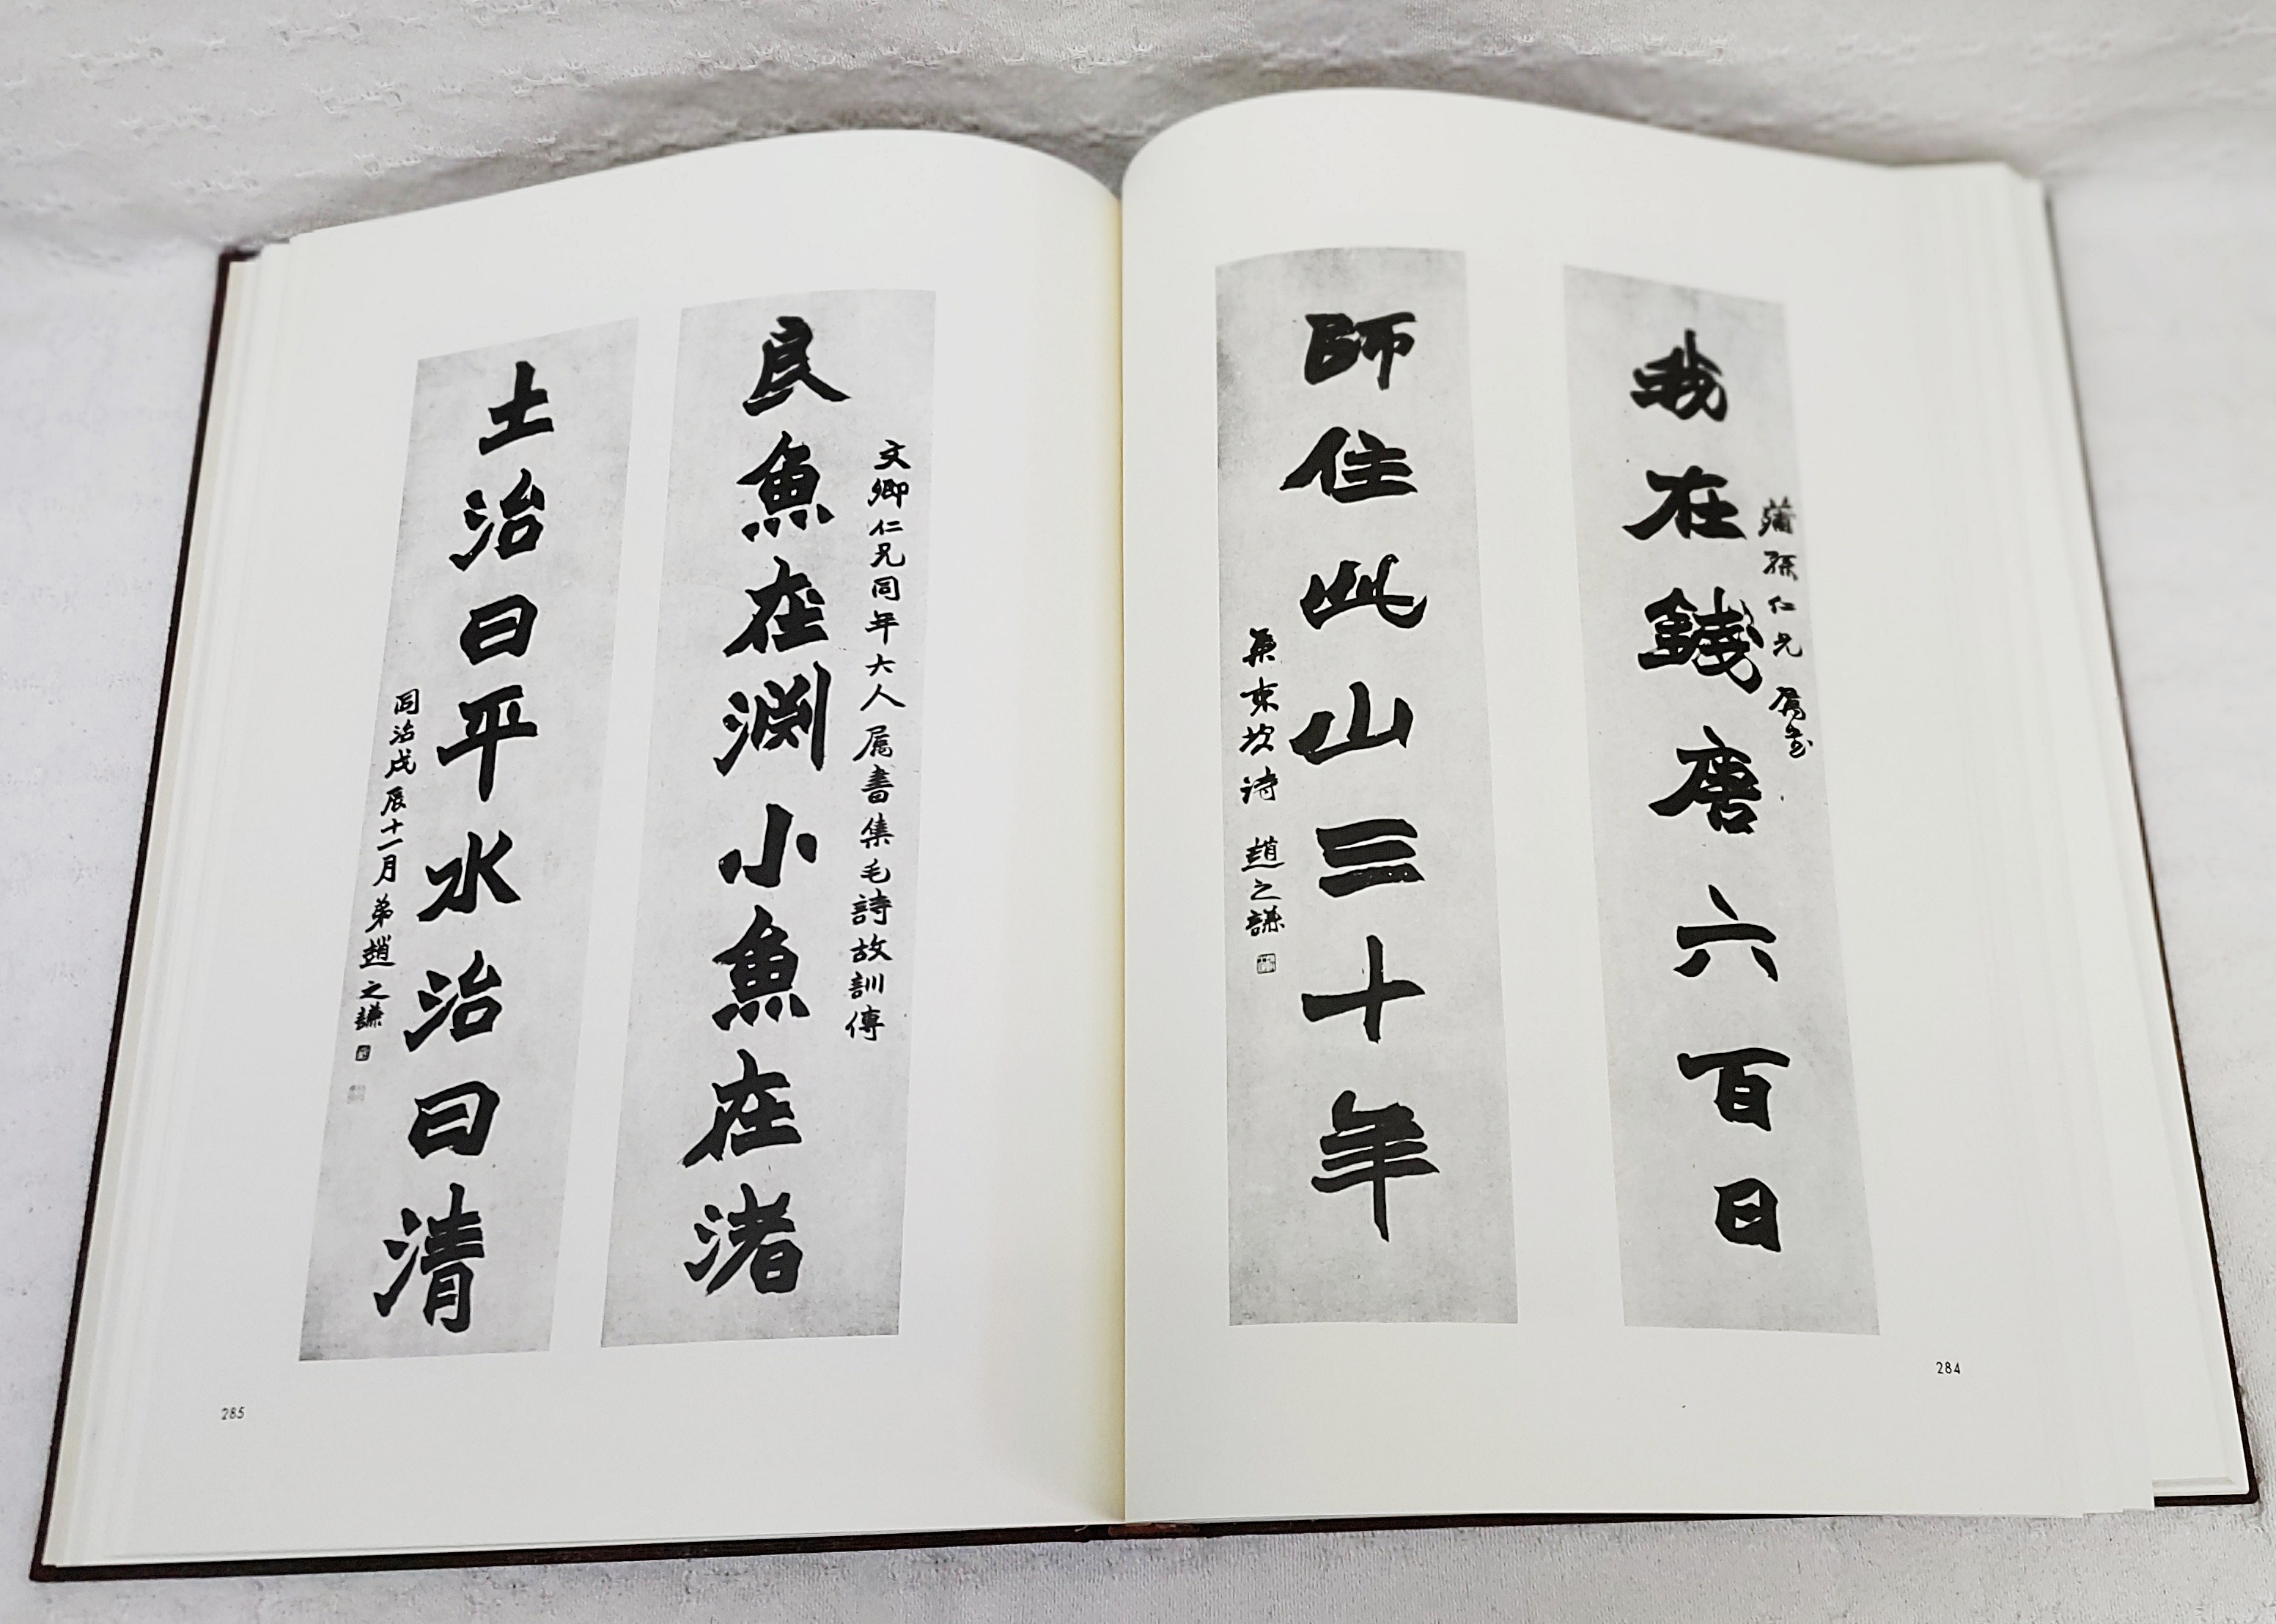 蒲孫仁兄屬書
我在錢唐六百日
師住此山三十年
集東坡詩 趙之謙
284
文卿仁兄同年大人屬書集毛詩故訓傳
良魚在淵小魚在渚
土治曰平水治曰清
同治戊辰十二月弟趙之謙
285